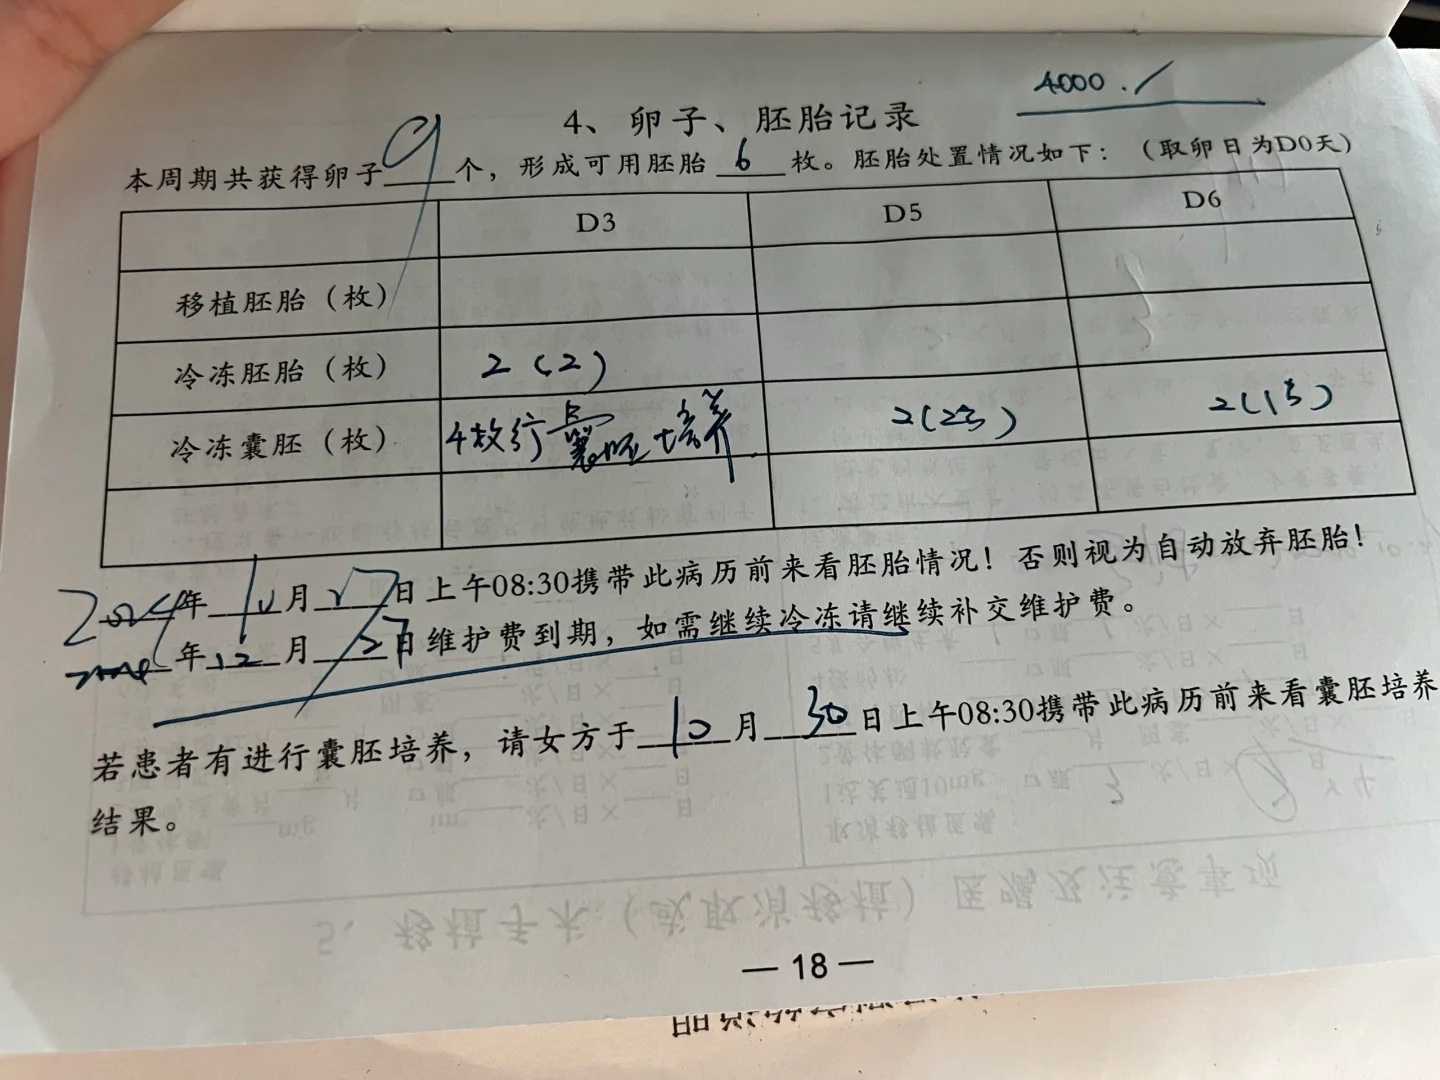 4000./
4、卵子、胚胎记录
本周期共获得卵子 9 个，形成可用胚胎 6 枚。胚胎处置情况如下：（取卵日为D0天）
D3 D5 D6
移植胚胎（枚）
冷冻胚胎（枚） 2（2）
冷冻囊胚（枚） 4枚行 囊胚培养 2（2 ） 2（1 ）
2024年 10 月 27 日上午08:30携带此病历前来看胚胎情况！否则视为自动放弃胚胎！
年 12 月 27 日维护费到期，如需继续冷冻请继续补交维护费。
若患者有进行囊胚培养，请女方于 10 月 30 日上午08:30携带此病历前来看囊胚培养
结果。
— 18 —